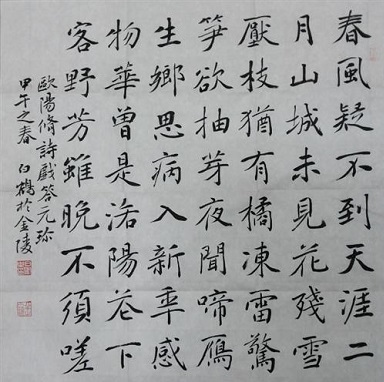 春風疑不到天涯二
月山城未見花殘雪
壓枝猶有橘凍雷驚
笋欲抽芽夜聞啼鴈
生鄉思病入新年感
物華曾是洛陽花下
客野芳雖晚不須嗟
歐陽脩詩戲答元珍
甲午之春 白鶴於金陵